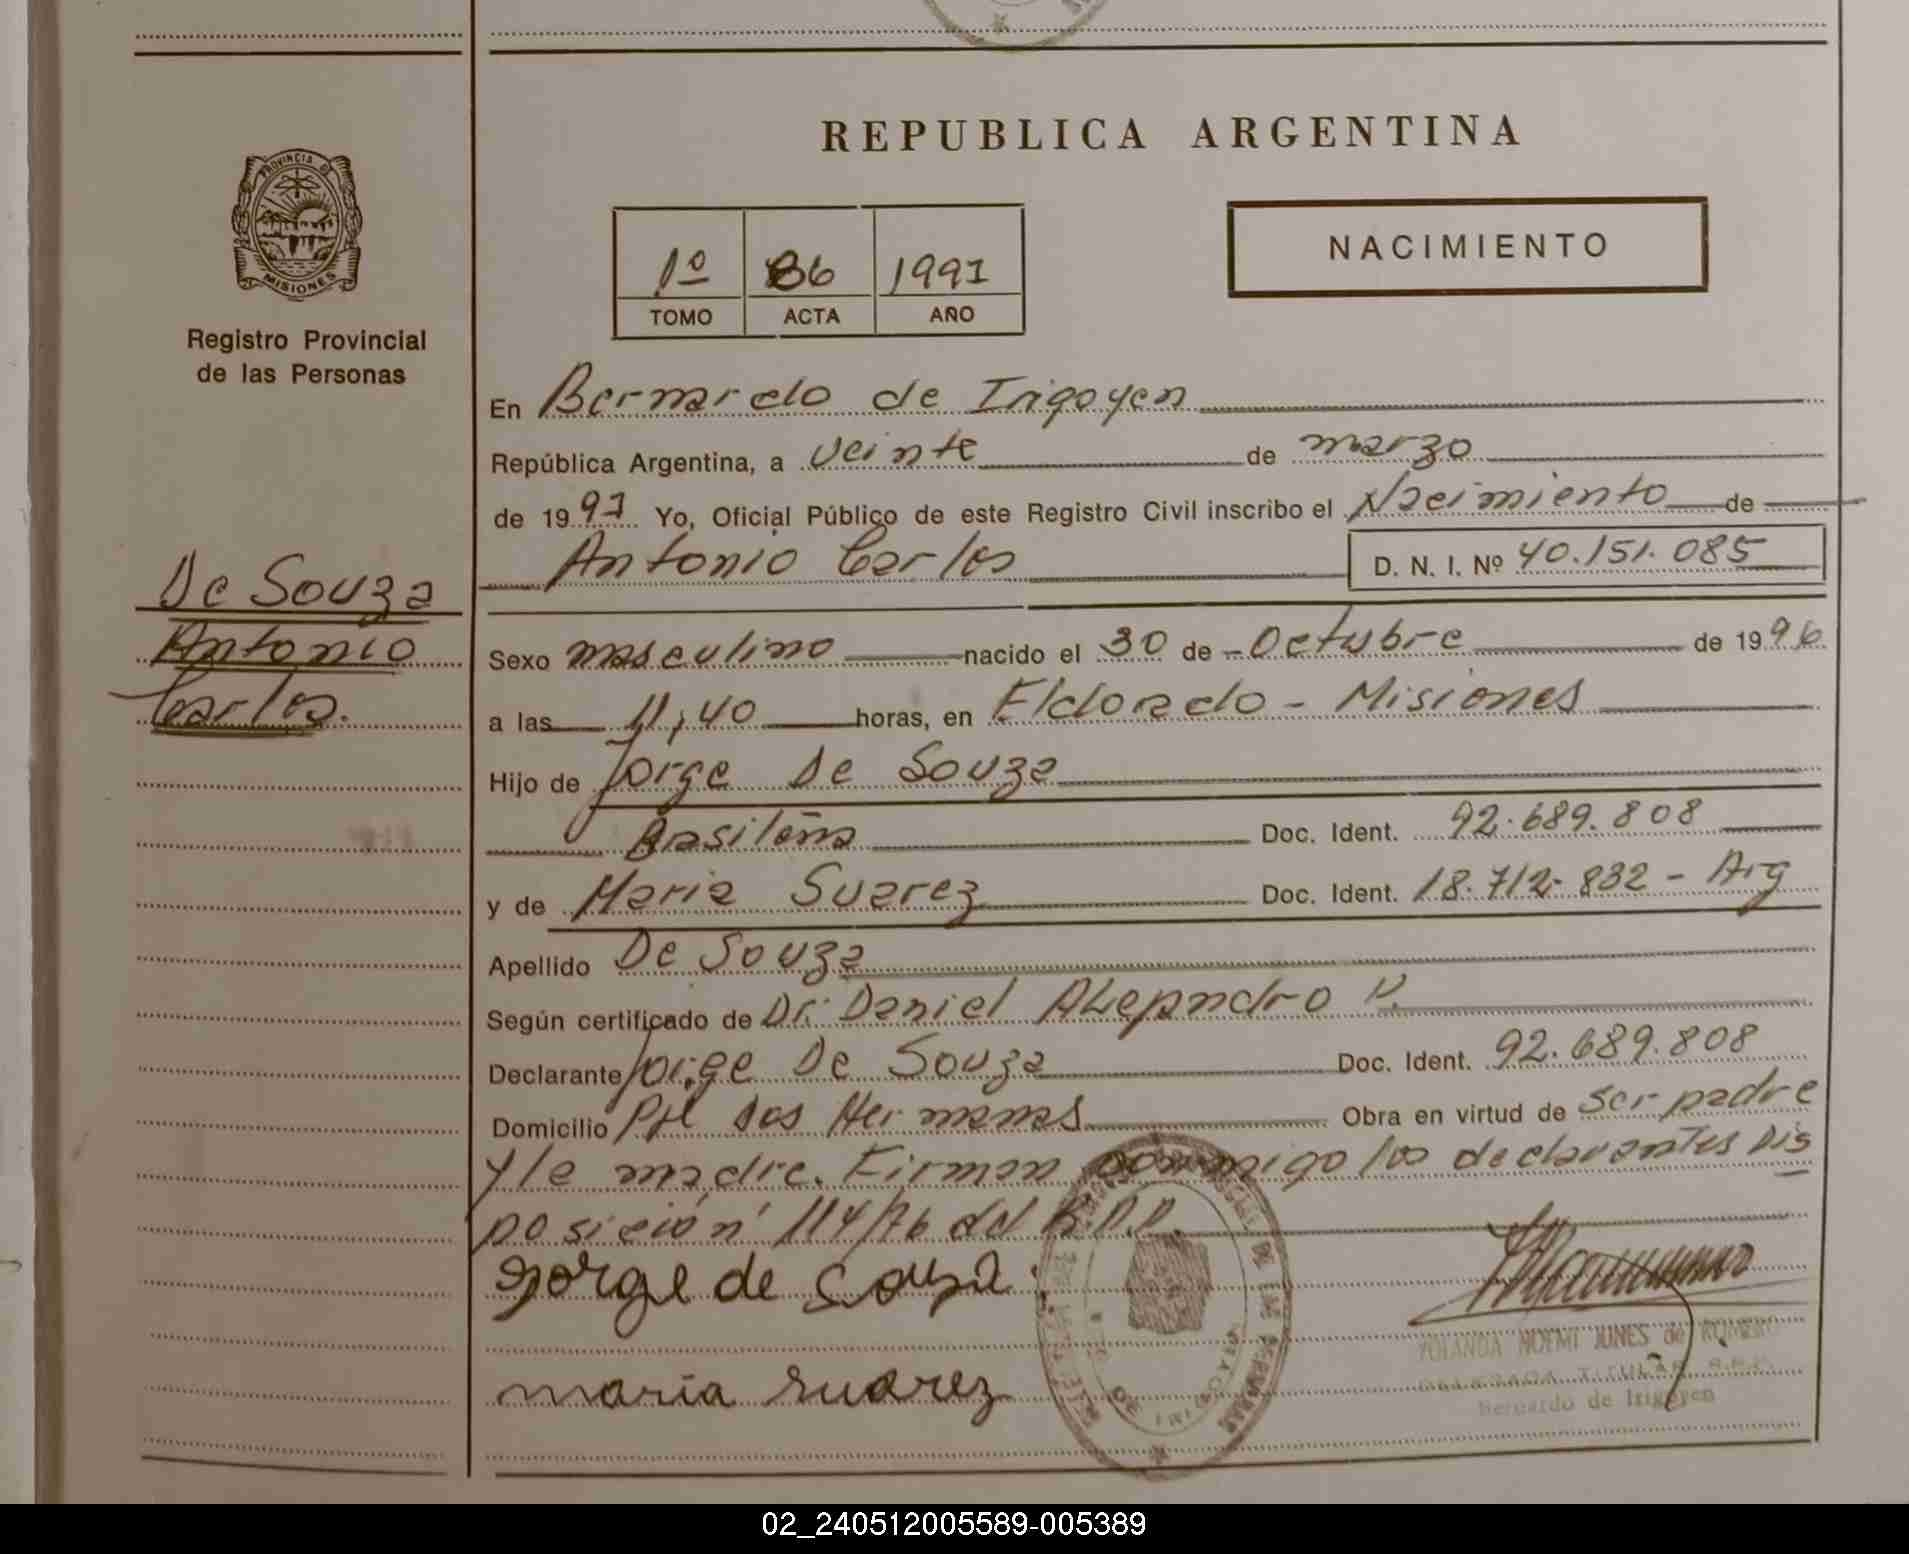 REPUBLICA ARGENTINA
PROVINCIA DE
MISIONES
Registro Provincial
de las Personas
1º 86 1997
TOMO ACTA AÑO
NACIMIENTO
En Bernardo de Irigoyen
República Argentina, a veinte de marzo
de 1997 Yo, Oficial Público de este Registro Civil inscribo el Nacimiento de
Antonio Carlos D. N. I. Nº 40.151.085
De Souza
Antonio
Carlos.
Sexo masculino nacido el 30 de Octubre de 1996
a las 11,40 horas, en Eldorado - Misiones
Hijo de Jorge De Souza
Brasileña Doc. Ident. 92.689.808
y de Maria Suarez Doc. Ident. 18.712.832 - Arg
Apellido De Souza
Según certificado de Dr. Daniel Alejandro P.
Declarante Jorge De Souza Doc. Ident. 92.689.808
Domicilio Pje Dos Hermanas Obra en virtud de ser padre
y la madre. Firman conmigo los declarantes Dis
posición 114/76 del R.P.P.
Jorge de Souza
maria suarez
YOLANDA NOEMI JUNES de ROMERO
DELEGADA TITULAR R.P.P.
Bernardo de Irigoyen
02_240512005589-005389